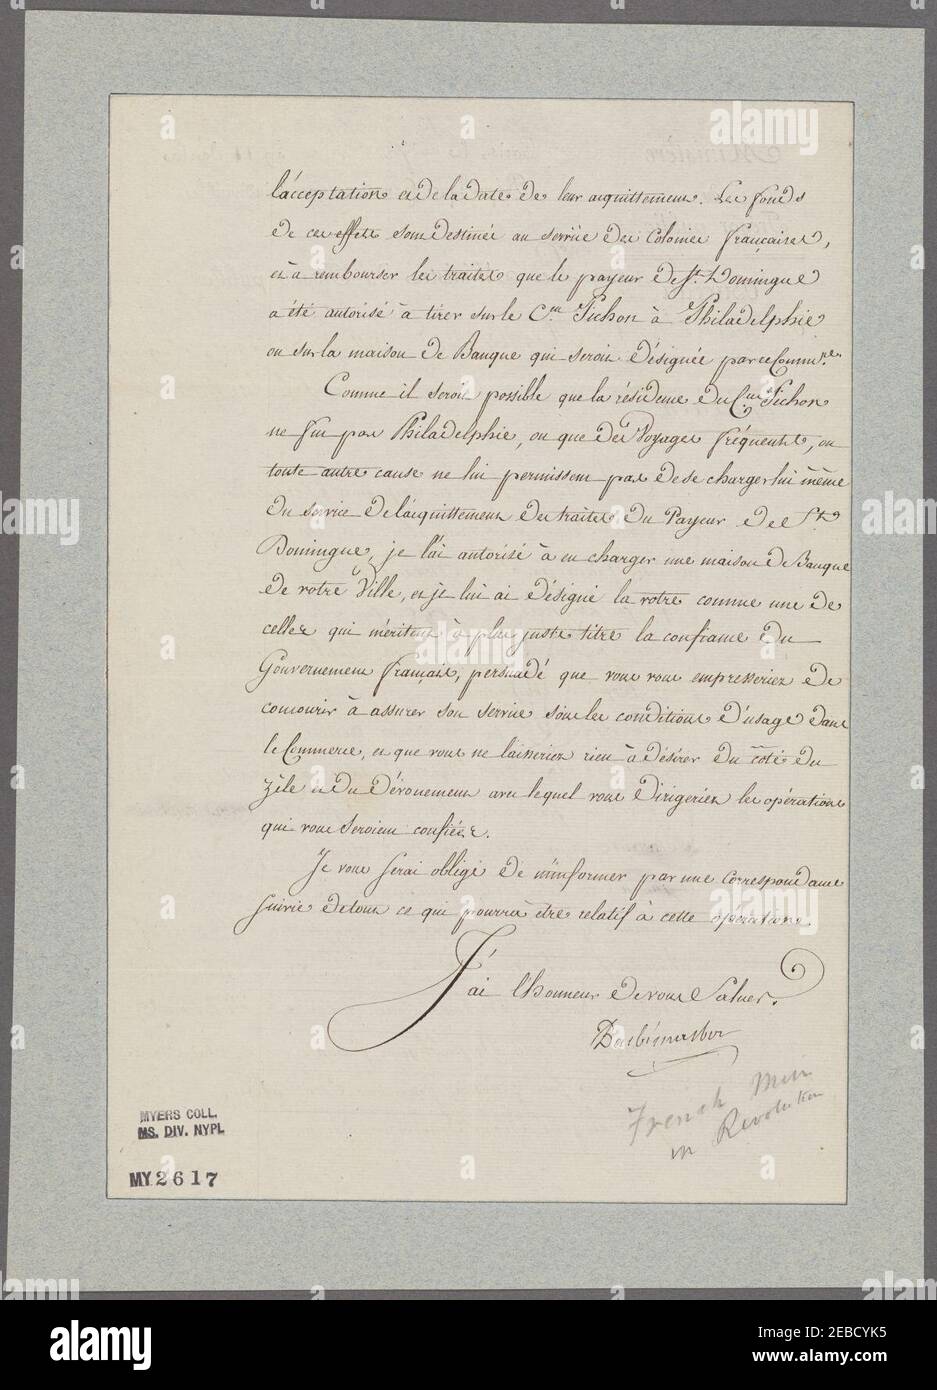 l'acceptation et de la date de leur acquittement. Les fonds
de ces effets sont destinés au service des Colonies françaises,
et à rembourser les traites que le payeur de St. Domingue
a été autorisé à tirer sur le Cen. Pichon à Philadelphie
ou sur la maison de Banque qui seroit désignée par ce Commre.
Comme il seroit possible que la résidence du Cen. Pichon
ne fut pas Philadelphie, ou que des Voyages fréquents, ou
toute autre cause ne lui permissent pas de se charger lui même
du service de l'acquittement des traites du Payeur de St.
Domingue, je l'ai autorisé à en charger une maison de Banque
de votre Ville, et je lui ai désigné la votre comme une de
celles qui méritent à plus juste titre la confiance du
Gouvernement français, persuadé que vous vous empresseriez de
concourir à assurer son service sous les conditions d'usage dans
le Commerce, et que vous ne laisseriez rien à désirer du côté du
zèle et du dévouement avec lequel vous dirigeriez les opérations
qui vous seroient confiées.
Je vous serai obligé de m'informer par une correspondance
suivie de tout ce qui pourra être relatif à cette opération.
J'ai l'honneur de vous Saluer.
French Min
in Revolution
MYERS COLL.
MS. DIV. NYPL
MY 2617
alamy
Image ID: 2EBCYK5
www.alamy.com